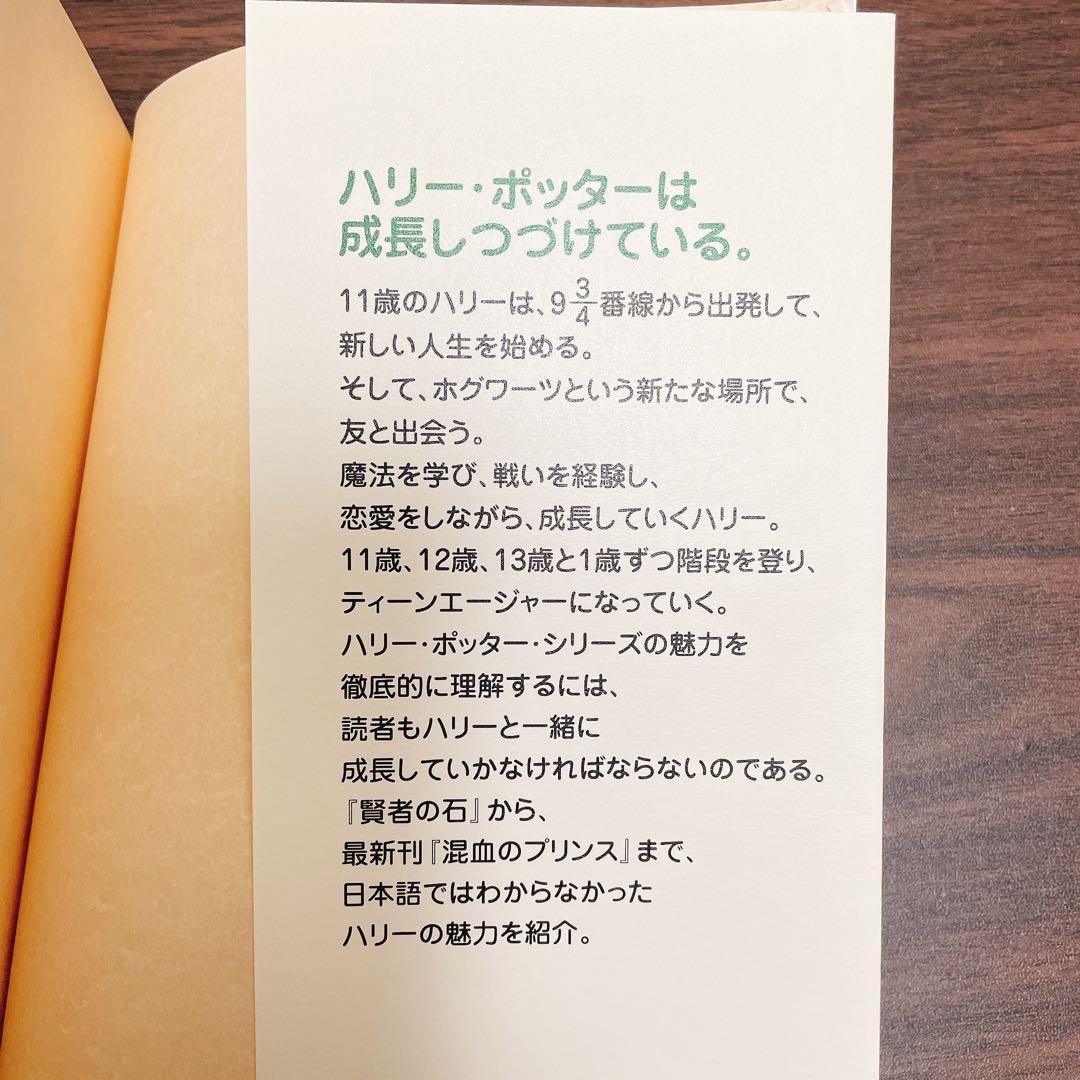 ハリー・ポッターは
成長しつづけている。
11歳のハリーは、9 3/4番線から出発して、
新しい人生を始める。
そして、ホグワーツという新たな場所で、
友と出会う。
魔法を学び、戦いを経験し、
恋愛をしながら、成長していくハリー。
11歳、12歳、13歳と1歳ずつ階段を登り、
ティーンエージャーになっていく。
ハリー・ポッター・シリーズの魅力を
徹底的に理解するには、
読者もハリーと一緒に
成長していかなければならないのである。
『賢者の石』から、
最新刊『混血のプリンス』まで、
日本語ではわからなかった
ハリーの魅力を紹介。